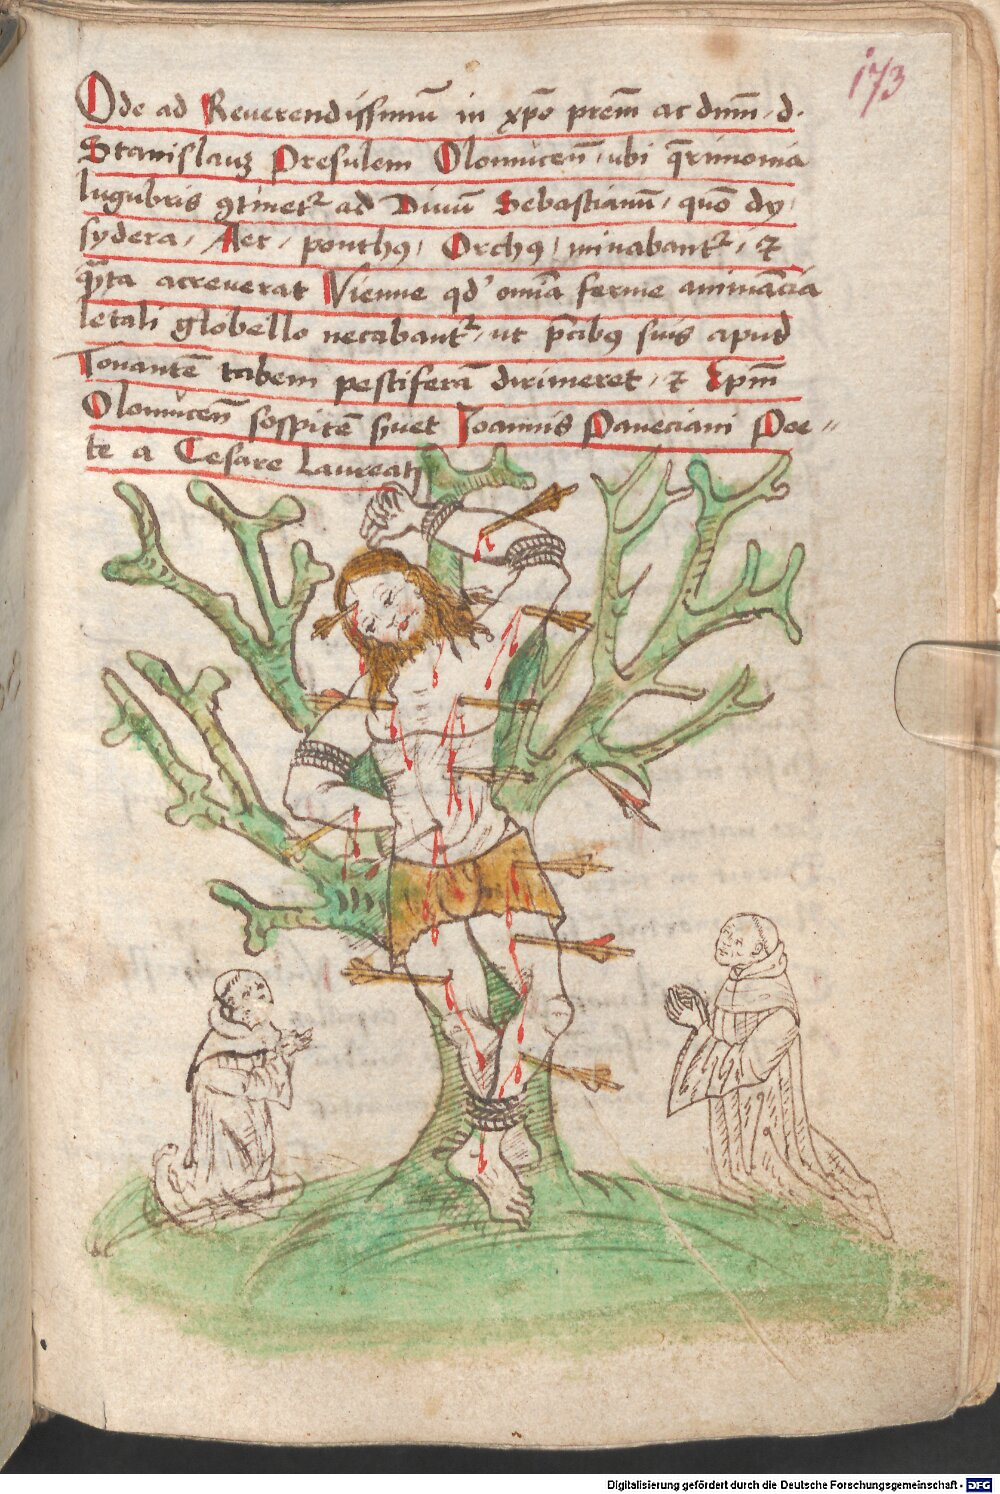 173
Ode ad Reuerendissimū in xp̄o prem̄ ac dnm̄ . d.
Stanislauꝫ Presulem Olomucen̄ / ubi q̄rimonia
lugubris ꝯtinet᷑ ad Diuū Sebastianū / quō dy
sydera / Aer / ponthꝰ / Orchꝰ / minabant᷑ / ⁊
acreuerat Vienne qd' omīa ferme animācia
letali globello necabant᷑ / ut p̄cibꝰ suis apud
Tonantē tabem pestiferā dirimeret / ⁊ Ep̄m
Olomucen̄ sospitē Joannis Paneciani Poe〃
te a Cesare Laureati
Digitalisierung gefördert durch die Deutsche Forschungsgemeinschaft - DFG